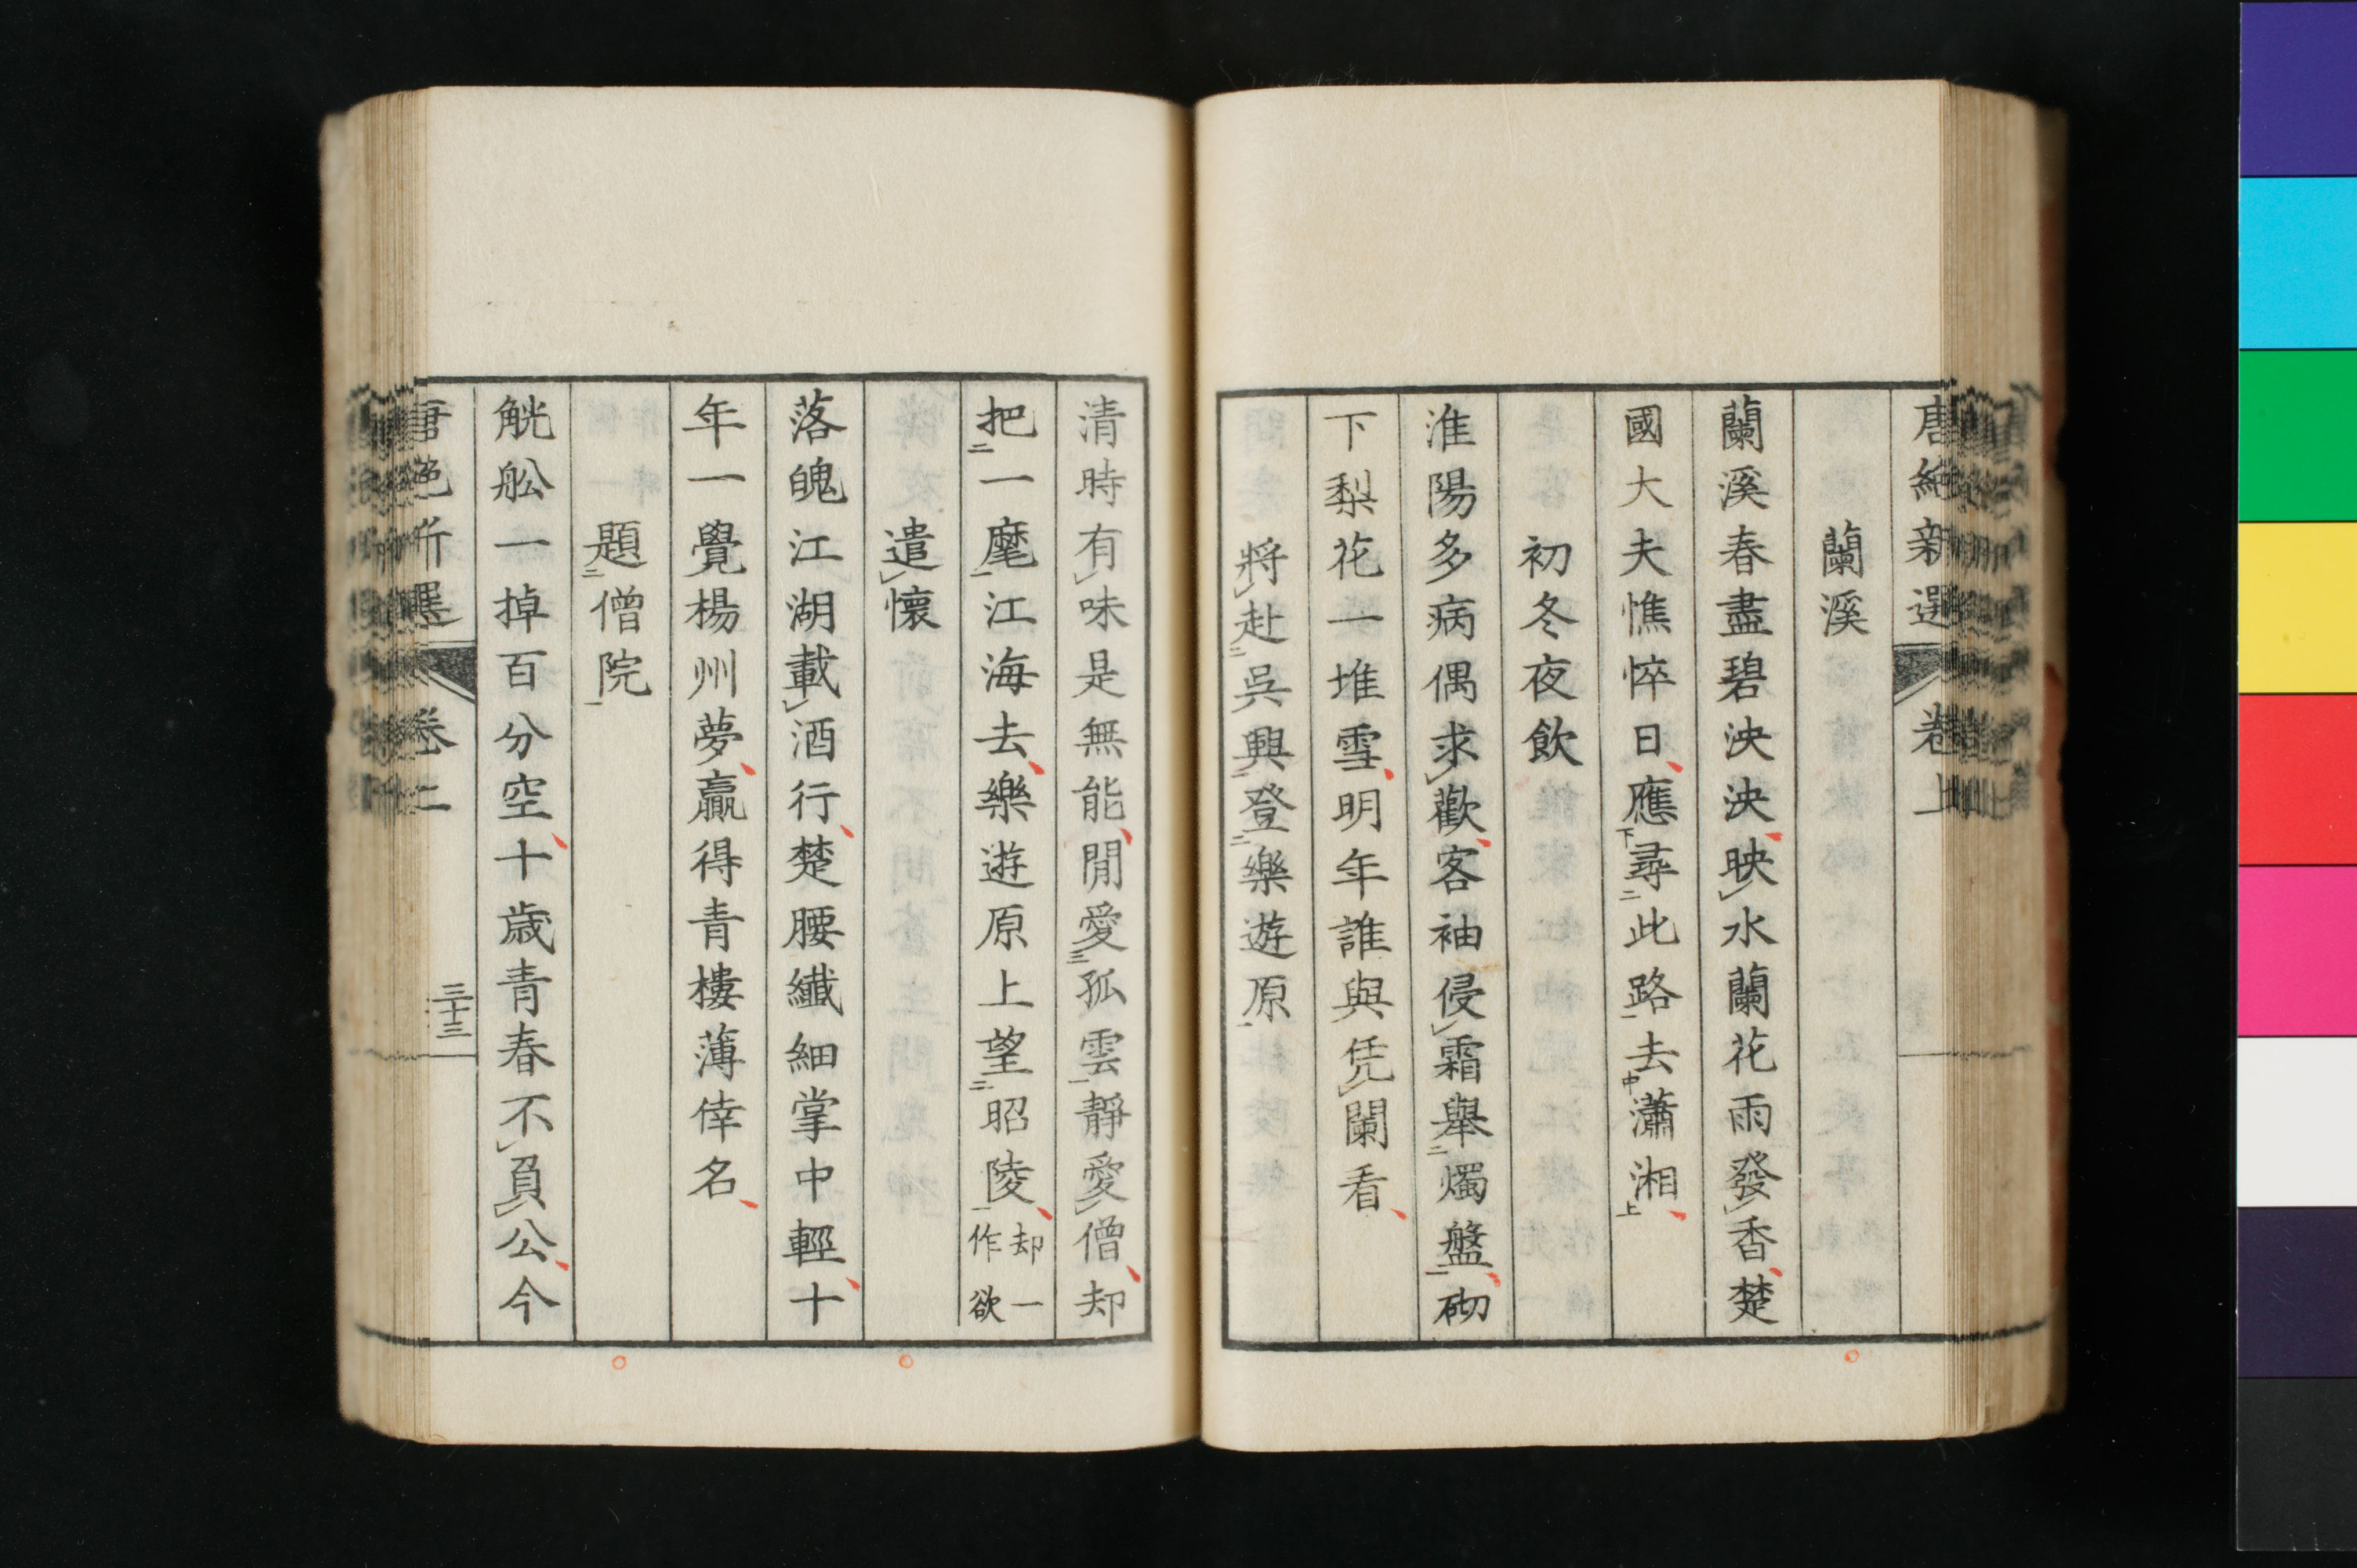 唐絶新選 卷上
蘭溪
蘭溪春盡碧泱泱映レ水蘭花雨發レ香楚
國大夫憔悴日應下尋二此路一去中瀟湘上
初冬夜飲
淮陽多病偶求レ歡客袖侵レ霜舉二燭盤一砌
下梨花一堆雪明年誰與凭レ闌看
將レ赴二吳興一登二樂遊原一
清時有レ味是無能閒愛三孤雲一靜愛レ僧却
把二一麾一江海去樂遊原上望二昭陵一却一
作欲
遣レ懷
落魄江湖載レ酒行楚腰纖細掌中輕十
年一覺楊州夢贏得青樓薄倖名
題二僧院一
觥舩一掉百分空十歲青春不レ負レ公今
三十三